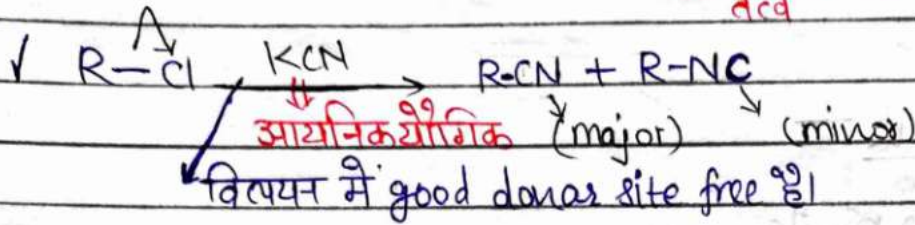 तत्व
✓ R-Cl KCN → R-CN + R-NC
आयनिक यौगिक (major) (minor)
विलयन में good donar site free है।